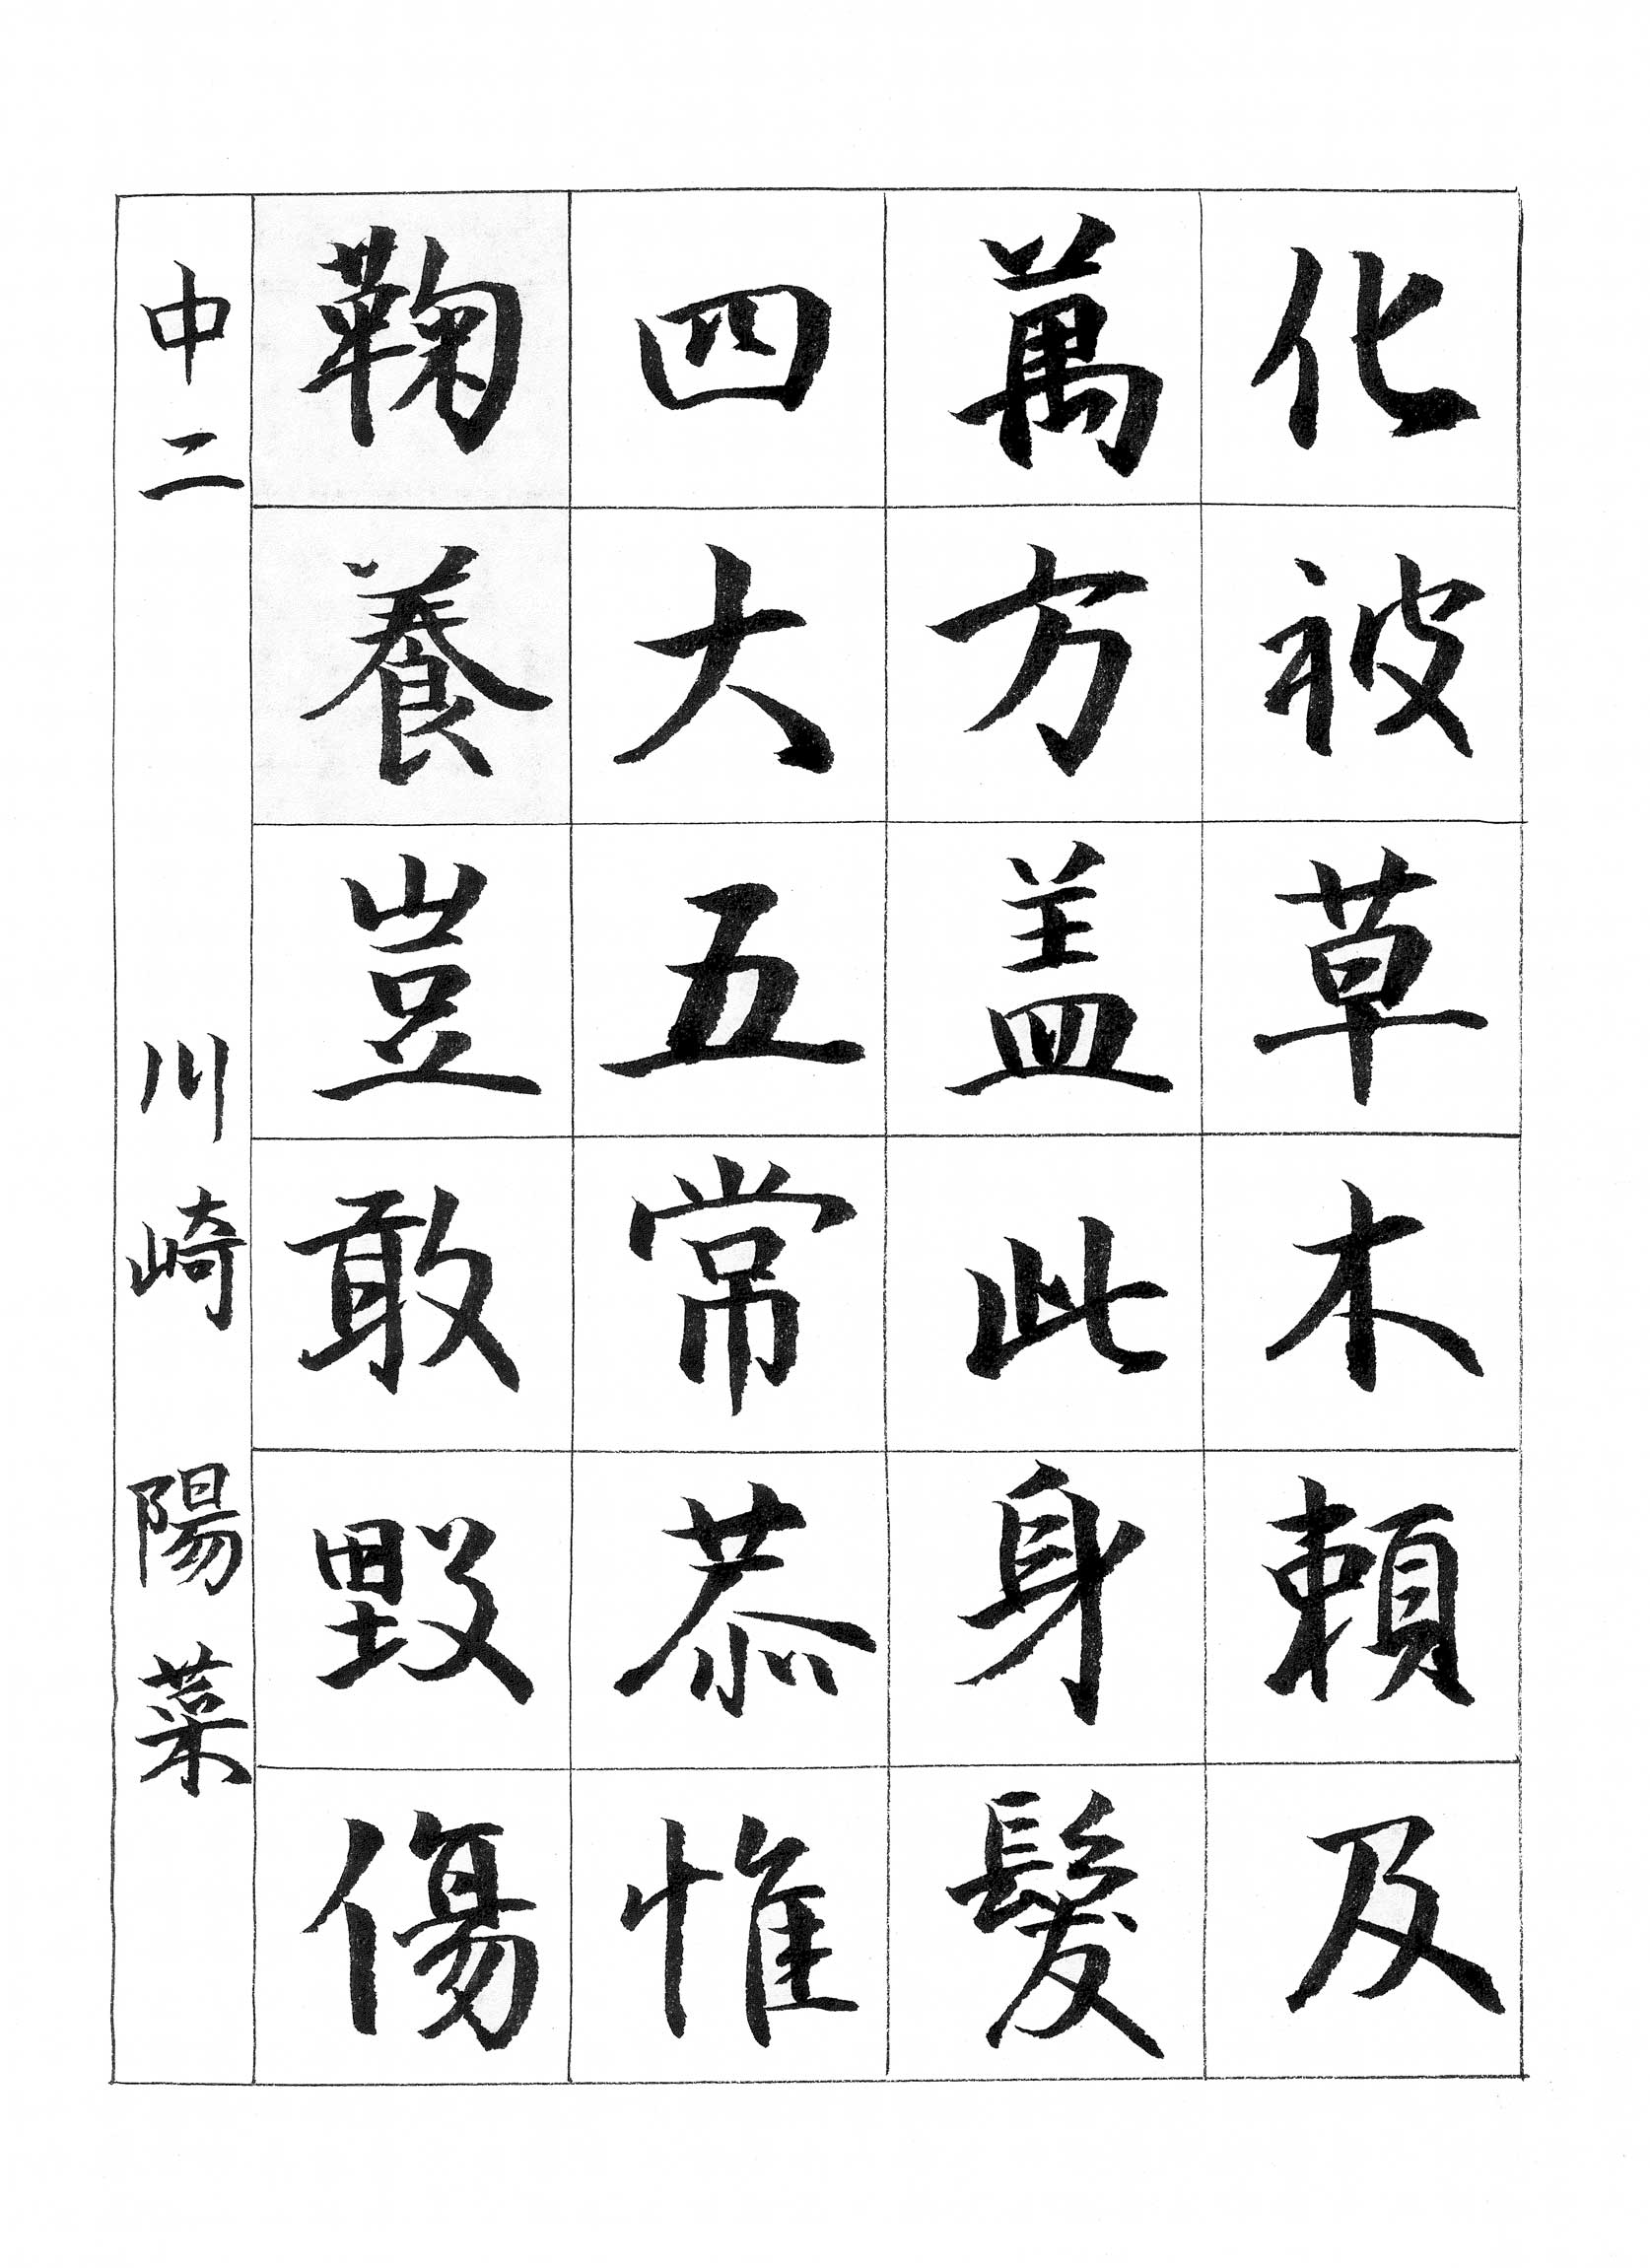 化被草木頼及
萬方盖此身髮
四大五常恭惟
鞠養豈敢毀傷
中二 川崎陽菜